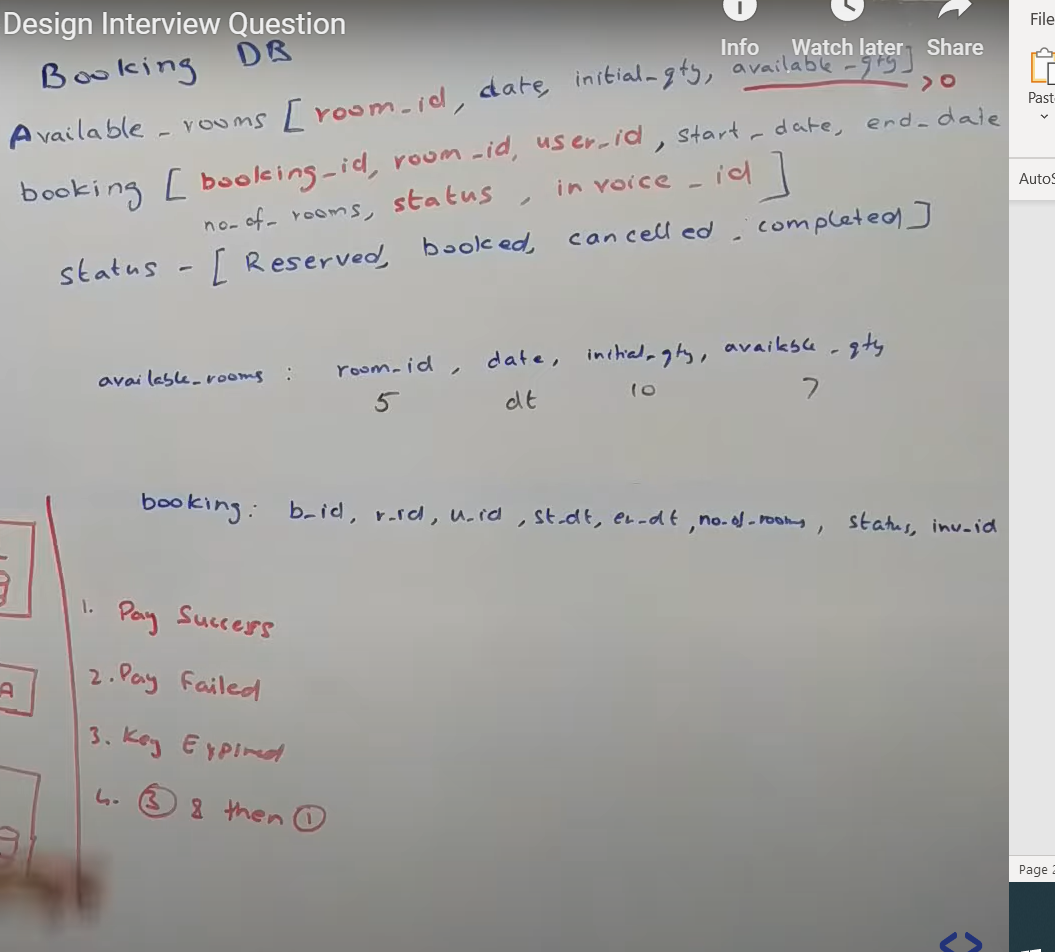 Design Interview Question
Info Watch later Share
File
Past
AutoS
Page 2
Booking DB
Available_rooms [room_id, date, initial_qty, available_qty] >0
booking [booking_id, room_id, user_id, start_date, end_date
no_of_rooms, status, invoice_id]
status - [Reserved, booked, cancelled, completed]
available_rooms : room_id, date, initial_qty, available_qty
5 dt 10 7
booking: b_id, r_id, u_id, st_dt, en_dt, no_of_rooms, status, inv_id
1. Pay Success
2. Pay Failed
3. Key Expired
4. ③ & then ①
A
<>